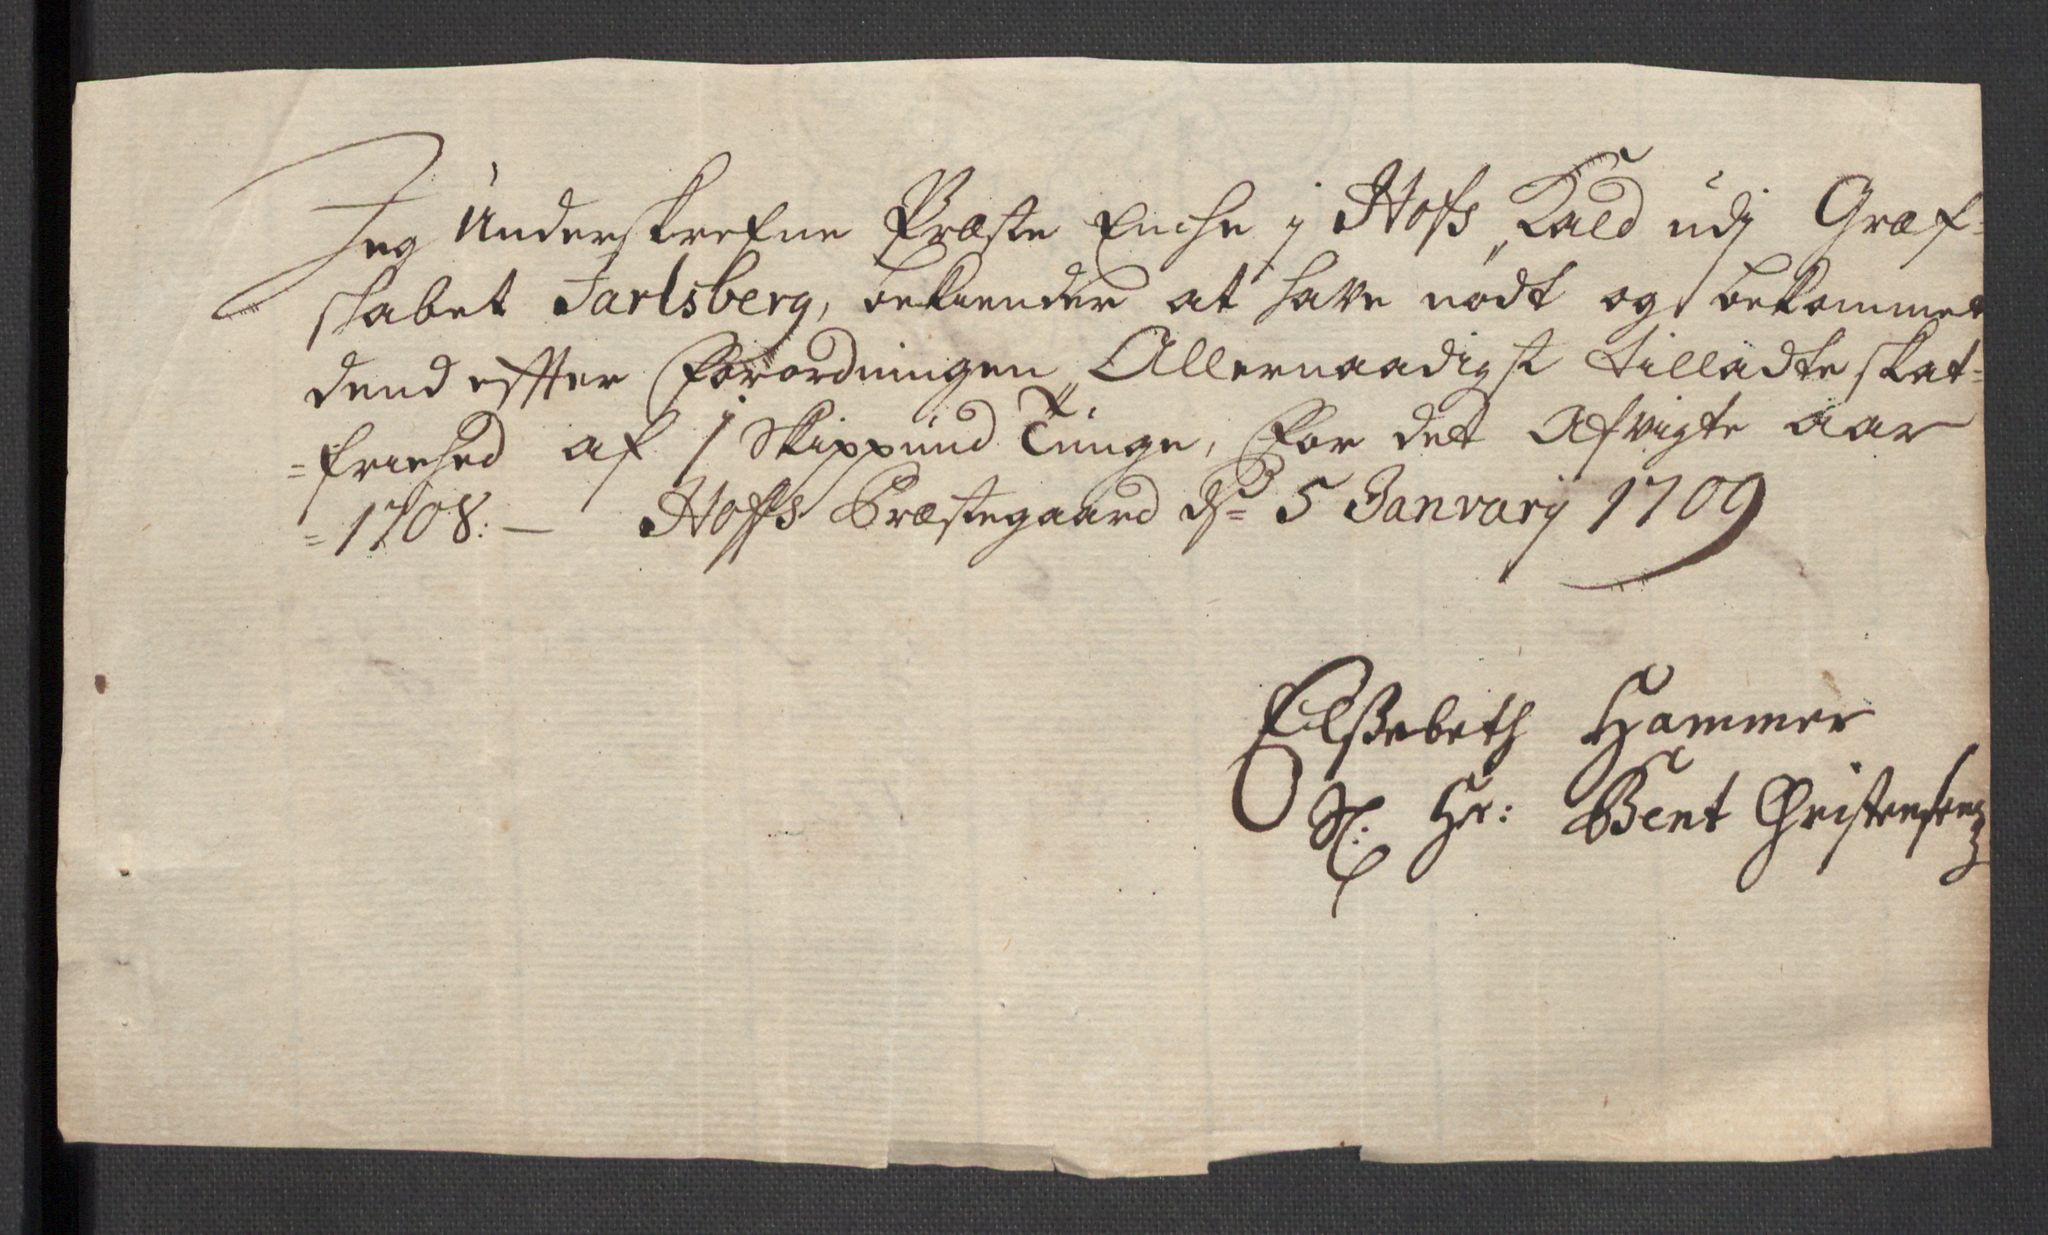 Jeg Underskrefne Præste Enche j Hofs Kald udj Græf-
skabet Jarlsberg, bekiender at have nødt og bekommet
dend effter Forordningen Allernaadigst tilladte skat-
=friehed af 1 Skippund Tunge, for det Afvigte aar
=1708:— Hoffs Præstegaard dn= 5 Janvarij 1709
Elssebeth Hammer
Sl. Hr: Bent Christensens